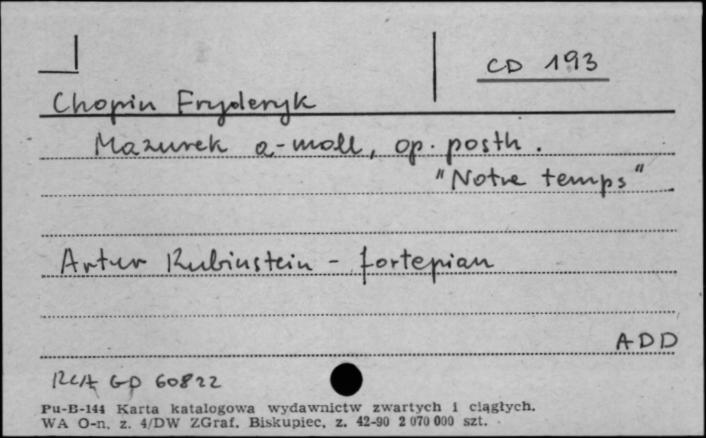 CD 193
Chopin Fryderyk
Mazurek a-moll, op. posth.
"Notre temps"
Artur Rubinstein - fortepian
ADD
RCA GD 60822
Pu-B-144 Karta katalogowa wydawnictw zwartych i ciągłych.
WA O-n. z. 4/DW ZGraf. Biskupiec, z. 42-90 2 070 000 szt.